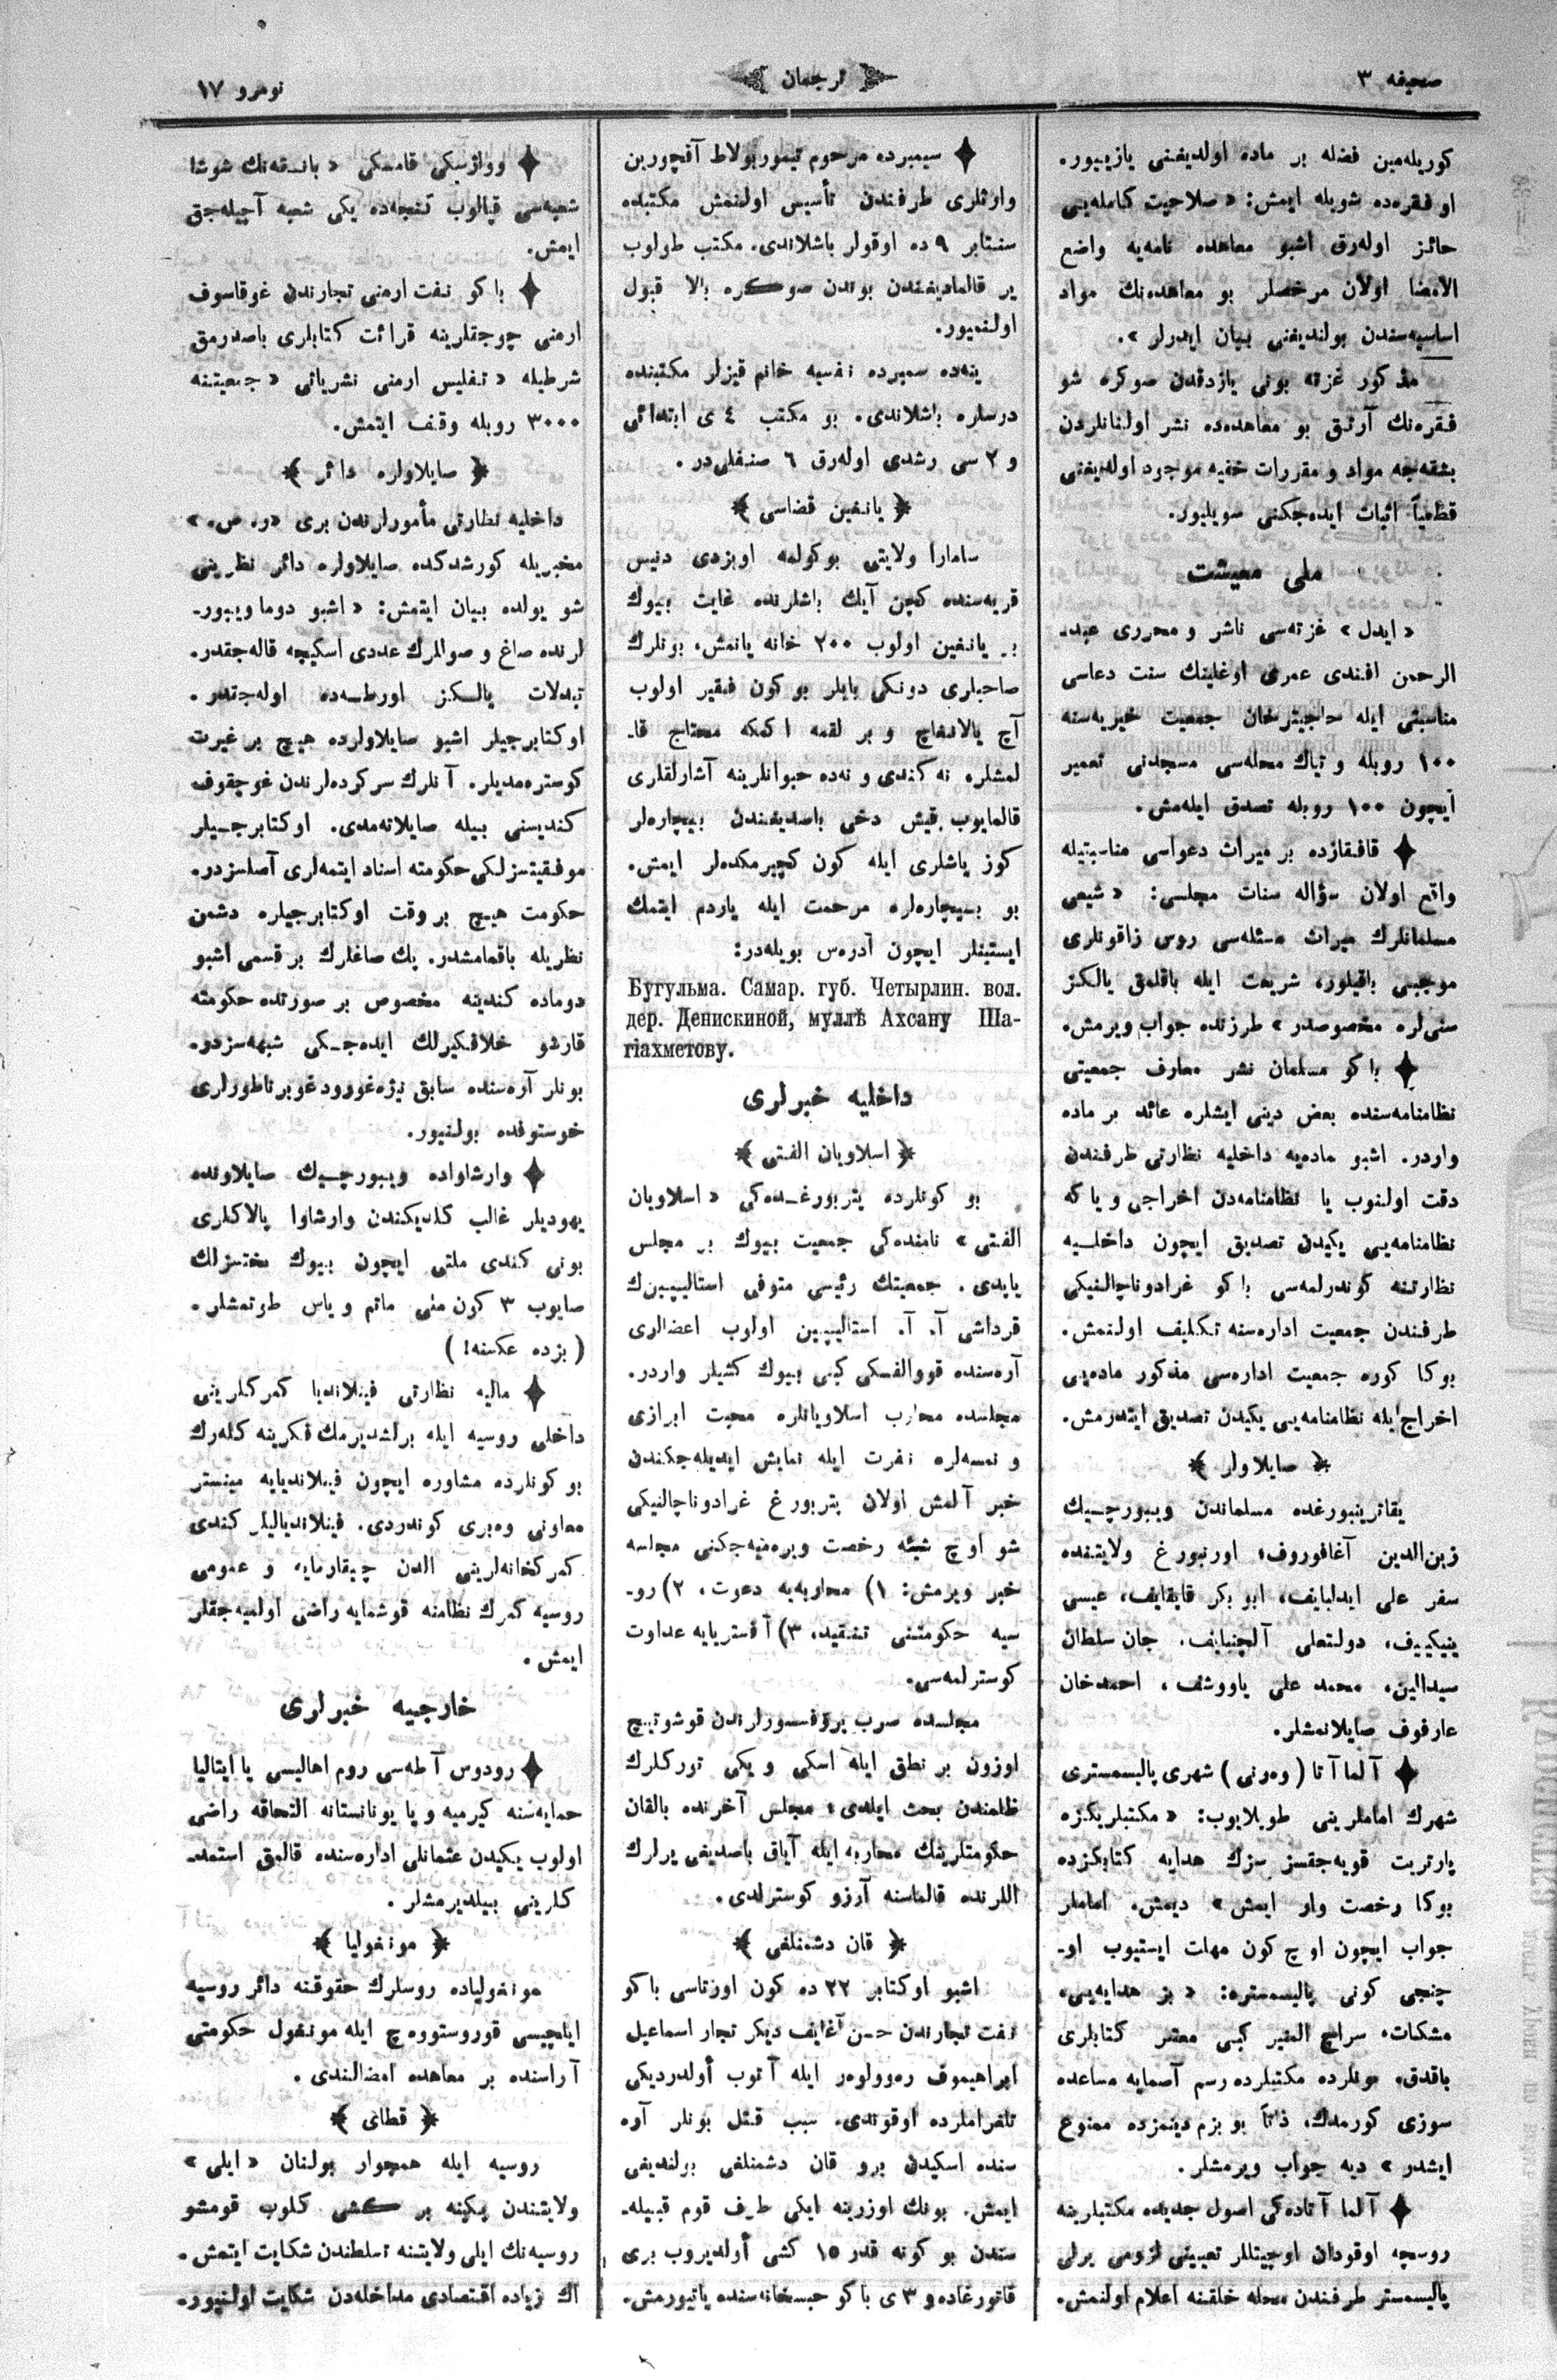 صحیفه ٣
ترجمان
نومرو ١٧
كوریله‌مین فضله بر ماده اولدیغنی یازییور.
او فقره‌ده شویله ایمش: «صلاحیت كامله‌یی
حائز اوله‌رق اشبو معاهده نامه‌یه واضع
الامضا اولان مرخصلر بو معاهده‌نك مواد
اساسیه‌سندن بولندیغنی بیان ایدرلر».
مذكور غزته بونی یازدقدن صوكره شو
فقره‌نك آرتق بو معاهده‌ده نشر اولنانلردن
بشقه‌جه مواد و مقررات خفیه موجود اولدیغنی
قطعیاً اثبات ایده‌جكنی سویلیور.
ملی معیشت
«ایدل» غزته‌سی ناشر و محرری عبد-
الرحمن افندی عمری اوغلینك سنت دعاسی
مناسبتی ایله حاجیترخان جمعیت خیریه‌سنه
١٠٠ روبله و تیاك محله‌سی مسجدنی تعمیر
ایچون ١٠٠ روبله تصدق ایله‌مش.
قافقازده بر میراث دعواسی مناسبتیله
واقع اولان سؤاله سنات مجلسی: «شیعی
مسلمانلرك میراث مسئله‌سی روس زاقونلری
موجبی باقیلور، شریعت ایله باقلمق یالكز
سنی‌لره مخصوصدر» طرزنده جواب ویرمش.
باكو مسلمان نشر معارف جمعیتی
نظامنامه‌سنده بعض دینی ایشلره عائد بر ماده
واردر. اشبو ماده‌یه داخلیه نظارتی طرفندن
دقت اولنوب یا نظامنامه‌دن اخراجی و یا كه
نظامنامه‌یی یكیدن تصدیق ایچون داخلیه
نظارتنه كوندرلمه‌سی باكو غرادوناچالنیكی
طرفندن جمعیت اداره‌سنه تكلیف اولنمش.
بوكا كوره جمعیت اداره‌سی مذكور ماده‌یی
اخراج ایله نظامنامه‌یی یكیدن تصدیق ایتدرمش.
﴿ صایلاولر ﴾
یقاترینبورغده مسلماندن ویبورچیك
زین‌الدین آغافوروف، اورنبورغ ولایتنده
سفر علی ایدلبایف، ابو بكر قایقایف، عیسی
ینیكییف، دولتعلی آلچنبایف، جان سلطان
سیدالین، محمد علی یاووشف، احمدخان
عارفوف صایلانمشلر.
آلما آتا (وه‌رنی) شهری پالیسمستری
شهرك اماملرینی طوپلایوب: «مكتبلریكزه
پارتریت قویه‌جقسز سزك هدایه كتابكزده
بوكا رخصت وار ایمش» دیمش. اماملر
جواب ایچون اوچ كون مهلت ایستیوب او-
چنجی كونی پالیسمستره: «بز هدایه‌یی،
مشكات، سراج المنیر كبی معتبر كتابلری
باقدق، بونلرده مكتبلرده رسم آصمایه مساعده
سوزی كورمدك، ذاتاً بو بزم دینمزده ممنوع
ایشدر» دیه جواب ویرمشلر.
آلما آتاده‌كی اصول جدیده مكتبلرینه
روسچه اوقودان اوچیتللر تعیینی لزومی یرلی
پالیسمستر طرفندن محله خلقنه اعلام اولنمش.
سیمبرده مرحوم تیموربولاط آقچورین
وارثلری طرفندن تأسیس اولنمش مكتبده
سنتابر ٩ ده اوقولر باشلاندی. مكتب طولوب
یر قالمادیغندن بوندن صوكره بالا قبول
اولنمیور.
ینه‌ده سمبرده نفسیه خانم قیزلر مكتبنده
درسلره باشلاندی. بو مكتب ٤ ی ابتدائی
و ٢ سی رشدی اوله‌رق ٦ صنفلی‌در.
﴿ یانغین قضاسی ﴾
سامارا ولایتی بوكولمه اویزدی دنیس
قریه‌سنده كچن آیك باشلرنده غایت بیوك
بر یانغین اولوب ٢٠٠ خانه یانمش، بونلرك
صاحبلری دونكی بایلر بو كون فقیر اولوب
آچ یالانغاچ و بر لقمه اكمكه محتاج قا-
لمشلره نه كندی و نه‌ده حیوانلرینه آشارلقلری
قالمایوب قیش دخی باصدیغندن بیچاره‌لر
كوز یاشلری ایله كون كچیرمكده‌لر ایمش.
بو بیچاره‌لره مرحمت ایله یاردم ایتمك
ایستینلر ایچون آدره‌س بویله‌در:
Бугульма. Самар. губ. Четырлин. вол.
дер. Денискиной, муллѣ Ахсану Ша-
гіахметову.
داخلیه خبرلری
﴿ اسلاویان الفتی ﴾
بو كونلرده پتربورغده‌كی «اسلاویان
الفتی» نامنده‌كی جمعیت بیوك بر مجلس
یاپدی. جمعیتك رئیسی متوفی استالیپین‌ك
قرداشی آ. آ. استالیپین اولوب اعضالری
آره‌سنده قووالفسكی كبی بیوك كشیلر واردر.
مجلسده محارب اسلاویانلره محبت ابرازی
و نمسه‌لره نفرت ایله نمایش ایدیله‌جكندن
خبر آلمش اولان پتربورغ غرادوناچالنیكی
شو اوچ شیئه رخصت ویره‌میه‌جكنی مجلسه
خبر ویرمش: ١) محاربه‌یه دعوت، ٢) رو-
سیه حكومتنی تنقید، ٣) آفستریایه عداوت
كوسترلمه‌سی.
مجلسده صرب پروفسورلرندن قوشوتیچ
اوزون بر نطق ایله اسكی و یكی توركلرك
ظلمندن بحث ایلدی؛ مجلس آخرنده بالقان
حكومتلرینك محاربه ایله آیاق باصدیغی یرلرك
اللرنده قالماسنه آرزو كوسترلدی.
﴿ قان دشمنلغی ﴾
اشبو اوكتابر ٢٢ ده كون اورتاسی باكو
نفت تجارندن حسن آغایف دیكر تجار اسماعیل
ابراهیموف ره‌وولوه‌ر ایله آتوب أولدردیكی
تلغراملرده اوقوندی. سبب قتل بونلر آره
سنده اسكیدن برو قان دشمنلغی بولندیغی
ایمش. بونك اوزرینه ایكی طرف قوم قبیله-
سندن بو كونه قدر ١٥ كشی أولدیروب بری
قاتورغاده و ٣ ی باكو حبسخانه‌سنده یاتیورمش.
وواژسكی قامسكی «بانقه‌نك شوشا
شعبه‌سی قپالوب كنجه‌ده یكی شعبه آچیله‌جق
ایمش.
باكو نفت ارمنی تجارندن غوقاسوف
ارمنی چوجقلرینه قرائت كتابلری باصدرمق
شرطیله «تفلیس ارمنی نشریاتی» جمعیتنه
٣٠٠٠ روبله وقف ایتمش.
﴿ صایلاولره دائر ﴾
داخلیه نظارتی مأمورلرندن بری «ر. ص.»
مخبریله كورشدكده صایلاولره دائر نظرینی
شو یولده بیان ایتمش: «اشبو دوما ویبور-
لرنده صاغ و صوللرك عددی اسكیچه قاله‌جقدر.
تبدلات یالكز اورطه‌ده اوله‌جقدر.
اوكتابرجیلر اشبو صایلاولرده هیچ بر غیرت
كوستره‌مدیلر. آنلرك سركرده‌لرندن غوچقوف
كندیسنی بیله صایلاته‌مدی. اوكتابرجیلر
موفقیتسزلكی حكومته اسناد ایتمه‌لری آصلسزدر.
حكومت هیچ بر وقت اوكتابرجیلره دشمن
نظریله باقمامشدر. پك صاغلرك بر قسمی اشبو
دوماده كندینه مخصوص بر صورتده حكومته
قارشو خلافكیرلك ایده‌جكی شبهه‌سزدر.
بونلر آره‌سنده سابق نیژه‌غورود غوبرناطورلری
خوستوفده بولنیور.
وارشاواده ویبورچیك صایلاونده
یهودیلر غالب كلدیكندن وارشاوا پالاكلری
بونی كندی ملتی ایچون بیوك بختسزلك
صایوب ٣ كون ملی ماتم و یاس طوتمشلر.
(بزده عكسنه!)
مالیه نظارتی فینلاندیا كمركلرینی
داخلی روسیه ایله برلشدیرمك فكرینه كله‌رك
بو كونلرده مشاوره ایچون فینلاندیایه مینستر
معاونی وه‌بری كوندردی. فینلاندیالیلر كندی
كمركخانه‌لرینی الدن چیقارمایه و عمومی
روسیه كمرك نظامنه قوشمایه راضی اولمیه‌جقلر
ایمش.
خارجیه خبرلری
رودوس آطه‌سی روم اهالیسی یا ایتالیا
حمایه‌سنه كیرمیه و یا یونانستانه التحاقه راضی
اولوب یكیدن عثمانلی اداره‌سنده قالمق استمد-
كلرینی بیلدیرمشلر.
﴿ مونغولیا ﴾
مونغولیاده روسلرك حقوقنه دائر روسیه
ایلچیسی قوروستووه‌چ ایله مونغول حكومتی
آراسنده بر معاهده امضالندی.
﴿ قطای ﴾
روسیه ایله همجوار بولنان «ایلی»
ولایتندن پكینه بر كشی كلوب قومشو
روسیه‌نك ایلی ولایتنه تسلطندن شكایت ایتمش.
اك زیاده اقتصادی مداخله‌دن شكایت اولنیور.